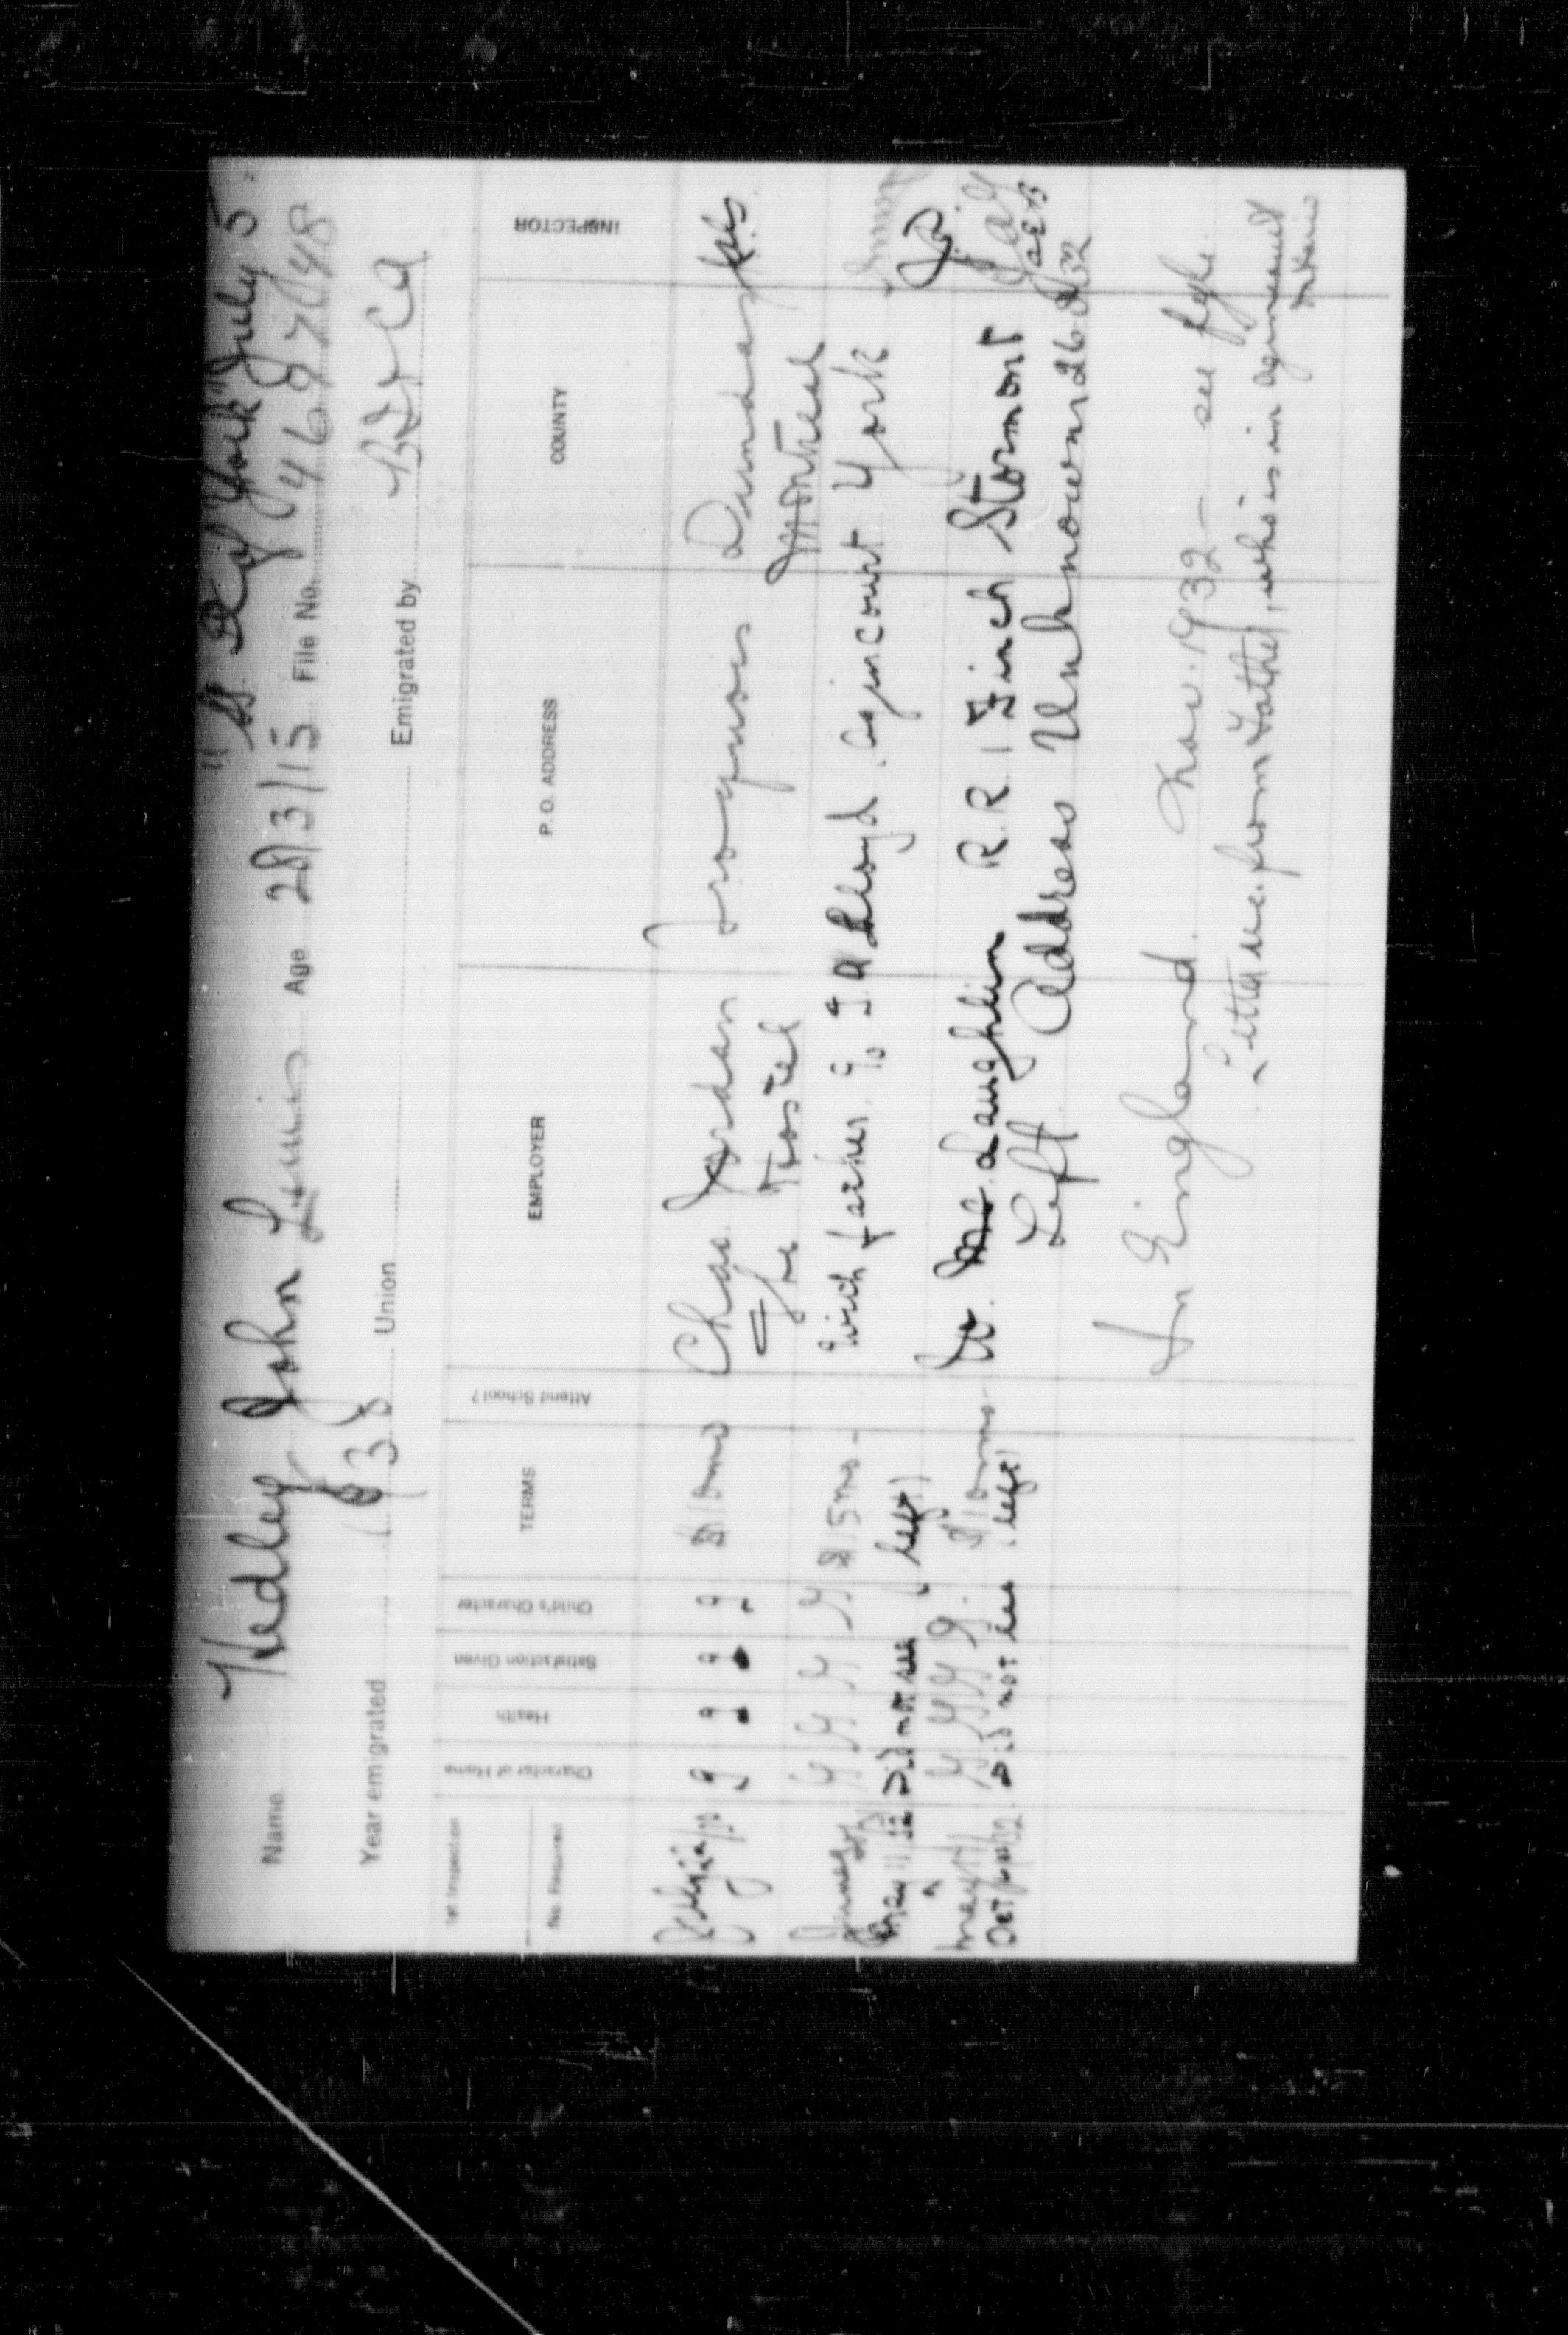 "S.S. Dof York" July 5
Name Hedley John Lewis Age 28/3/15 File No. 468748
Year emigrated 1930 Union Emigrated by
1st Inspection
No. Required
Character of Home
Health
Satisfaction Given
Child's Character
TERMS
Attend School?
EMPLOYER
P.O. ADDRESS
COUNTY
INSPECTOR
g g g g $10 mo Chas Jordan Iroquois Dundas
The Hostel Montreal
G G G G $15 mo - with father c/o I A Lloyd Agincourt York
May 11 32 Did not see (left)
G G G G. $10 mo W. McLaughlin R.R. 1 Finch Stormont
Oct Did not see (left) Left Address Unknown
In England. Nov. 1932 - see
Letter rec. from Father, who is in agreement